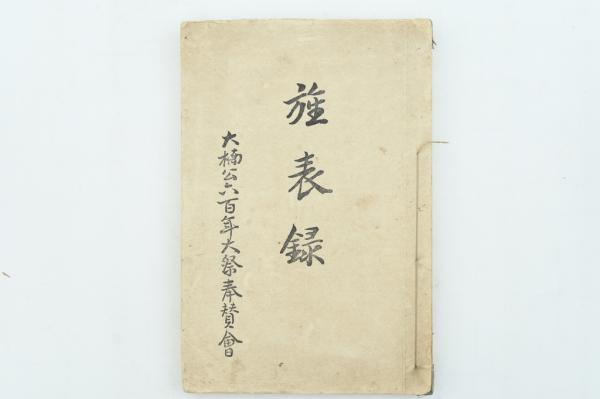 旌表録
大楠公六百年大祭奉賛會